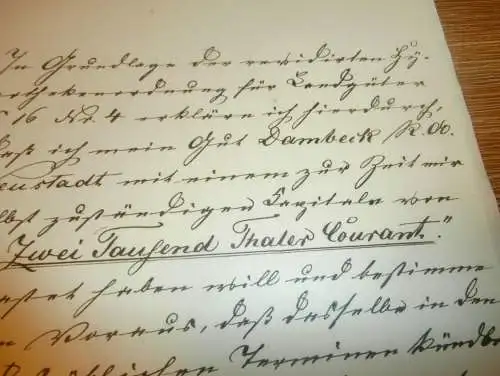 In Grundlage der revidirten Hy-
pothekenordnung für Landgüter
§ 16 Nr. 4 erkläre ich hierdurch,
daß ich mein Gut Dambeck R. do.
Neustadt mit einem zur Zeit mir
selbst zuständigen Capitale von
Zwei Tausend Thaler Courant."
belastet haben will und bestimme
im Voraus, daß dasselbe in den
üblichen Terminen kündb